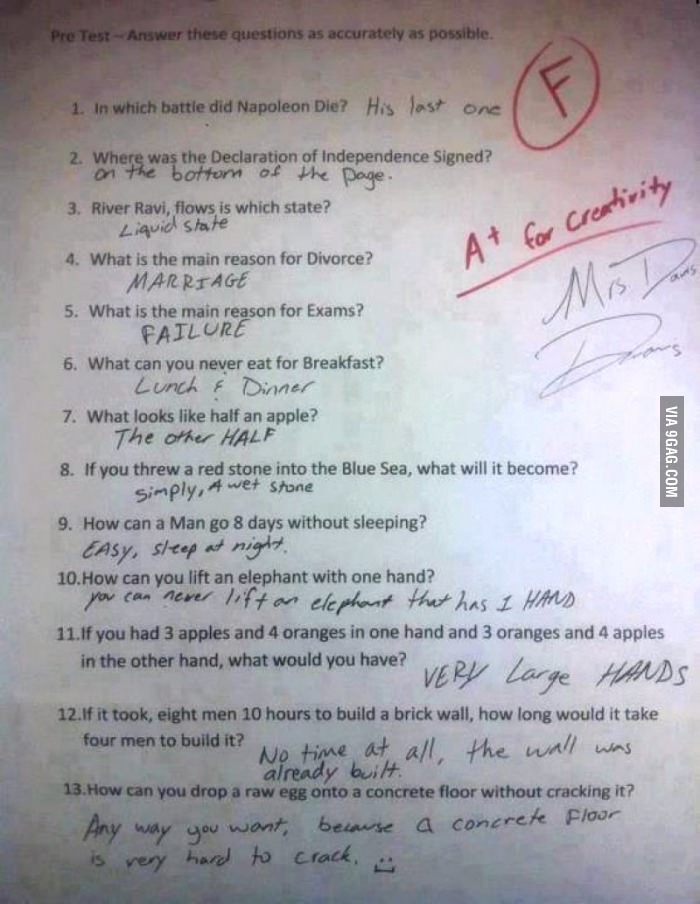 Pre Test – Answer these questions as accurately as possible.
F
1. In which battle did Napoleon Die? His last one
2. Where was the Declaration of Independence Signed?
on the bottom of the page.
A+ for creativity
3. River Ravi, flows is which state?
Liquid state
Mrs. Davis
4. What is the main reason for Divorce?
MARRIAGE
5. What is the main reason for Exams?
FAILURE
6. What can you never eat for Breakfast?
Lunch & Dinner
7. What looks like half an apple?
The other HALF
8. If you threw a red stone into the Blue Sea, what will it become?
simply, A wet stone
9. How can a Man go 8 days without sleeping?
EASY, sleep at night.
10.How can you lift an elephant with one hand?
you can never lift an elephant that has 1 HAND
11.If you had 3 apples and 4 oranges in one hand and 3 oranges and 4 apples
in the other hand, what would you have? VERY Large HANDS
12.If it took, eight men 10 hours to build a brick wall, how long would it take
four men to build it? No time at all, the wall was
already built.
13.How can you drop a raw egg onto a concrete floor without cracking it?
Any way you want, because a concrete Floor
is very hard to crack. :)
VIA 9GAG.COM